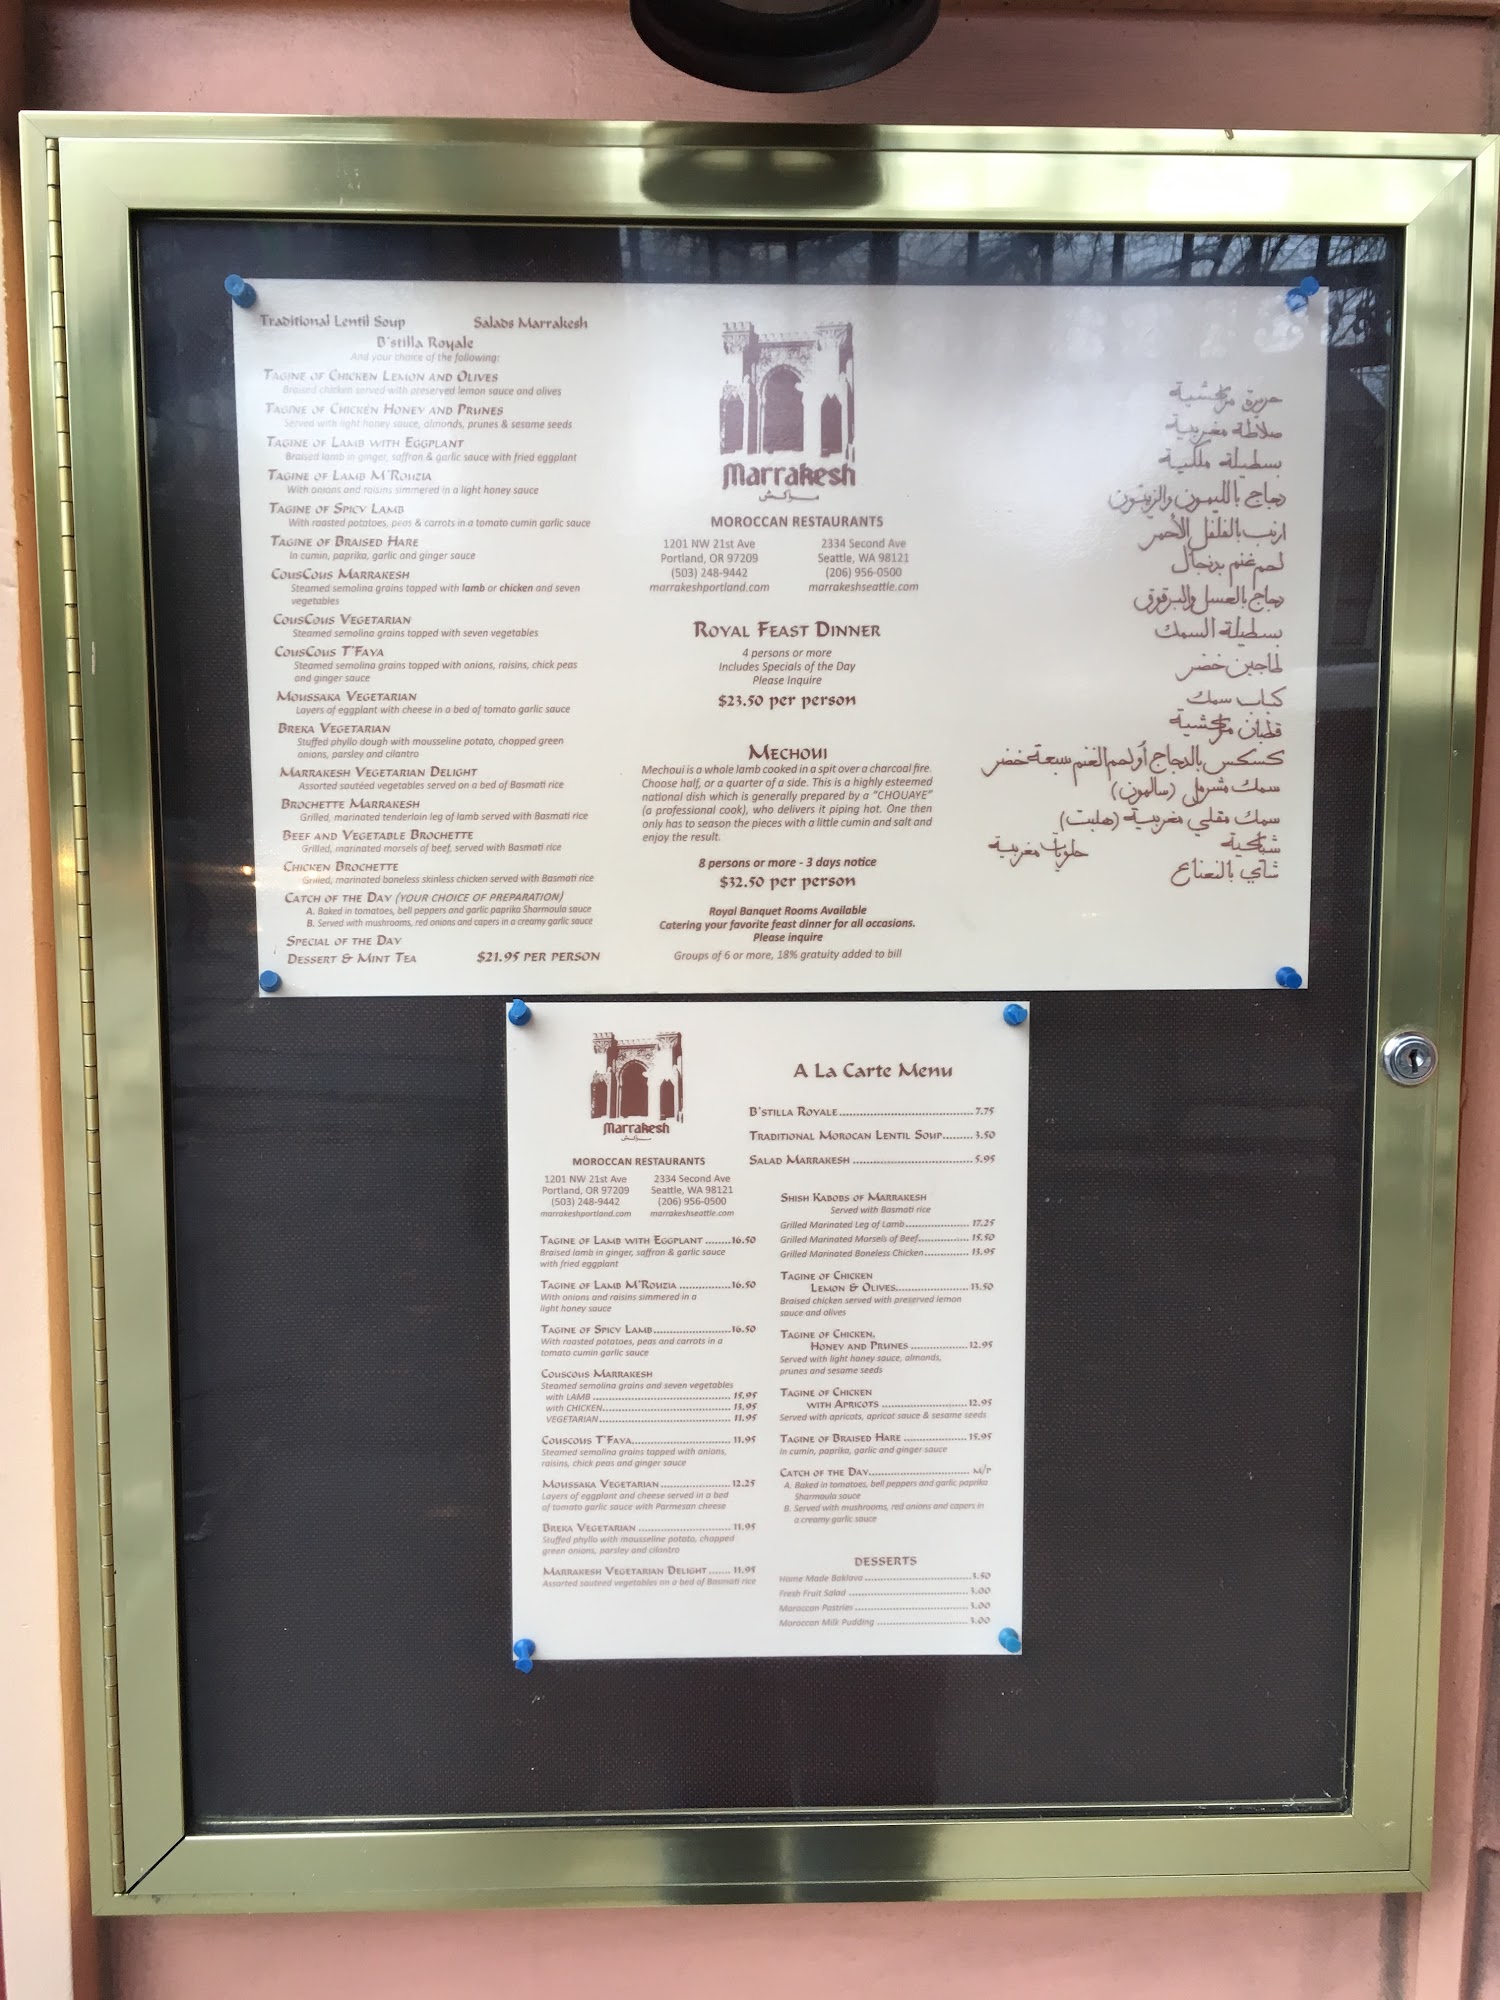 Traditional Lentil Soup Salads Marrakesh
B'stilla Royale
And your choice of the following:
Tagine of Chicken Lemon and Olives
Braised chicken served with preserved lemon sauce and olives
Tagine of Chicken Honey and Prunes
Served with light honey sauce, almonds, prunes & sesame seeds
Tagine of Lamb with Eggplant
Braised lamb in ginger, saffron & garlic sauce with fried eggplant
Tagine of Lamb M'Rouzia
With onions and raisins simmered in a light honey sauce
Tagine of Spicy Lamb
With roasted potatoes, peas & carrots in a tomato cumin garlic sauce
Tagine of Braised Hare
In cumin, paprika, garlic and ginger sauce
CousCous Marrakesh
Steamed semolina grains topped with lamb or chicken and seven
vegetables
CousCous Vegetarian
Steamed semolina grains topped with seven vegetables
CousCous T'Faya
Steamed semolina grains topped with onions, raisins, chick peas
and ginger sauce
Moussaka Vegetarian
Layers of eggplant with cheese in a bed of tomato garlic sauce
Breka Vegetarian
Stuffed phyllo dough with mousseline potato, chopped green
onions, parsley and cilantro
Marrakesh Vegetarian Delight
Assorted sautéed vegetables served on a bed of Basmati rice
Brochette Marrakesh
Grilled, marinated tenderloin leg of lamb served with Basmati rice
Beef and Vegetable Brochette
Grilled, marinated morsels of beef, served with Basmati rice
Chicken Brochette
Grilled, marinated boneless skinless chicken served with Basmati rice
Catch of the Day (YOUR CHOICE OF PREPARATION)
A. Baked in tomatoes, bell peppers and garlic paprika Sharmoula sauce
B. Served with mushrooms, red onions and capers in a creamy garlic sauce
Special of the Day
Dessert & Mint Tea $21.95 per person
Marrakesh
مراكش
MOROCCAN RESTAURANTS
1201 NW 21st Ave 2334 Second Ave
Portland, OR 97209 Seattle, WA 98121
(503) 248-9442 (206) 956-0500
marrakeshportland.com marrakeshseattle.com
Royal Feast Dinner
4 persons or more
Includes Specials of the Day
Please Inquire
$23.50 per person
Mechoui
Mechoui is a whole lamb cooked in a spit over a charcoal fire.
Choose half, or a quarter of a side. This is a highly esteemed
national dish which is generally prepared by a "CHOUAYE"
(a professional cook), who delivers it piping hot. One then
only has to season the pieces with a little cumin and salt and
enjoy the result.
8 persons or more - 3 days notice
$32.50 per person
Royal Banquet Rooms Available
Catering your favorite feast dinner for all occasions.
Please inquire
Groups of 6 or more, 18% gratuity added to bill
حريرة مراكشية
صلاطة مغربية
بسطيلة ملكية
دجاج بالليمون والزيتون
ارنب بالفلفل الأحمر
لحم غنم بدنجال
دجاج بالعسل والبرقوق
بسطيلة السمك
طاجين خضر
كباب سمك
قطبان مراكشية
كسكس بالدجاج أولحم الغنم سبعة خضر
سمك مشرمل (سالمون)
سمك مقلي مغربية (هلبت)
شباكية حلويات مغربية
شاي بالنعناع
Marrakesh
مراكش
MOROCCAN RESTAURANTS
1201 NW 21st Ave 2334 Second Ave
Portland, OR 97209 Seattle, WA 98121
(503) 248-9442 (206) 956-0500
marrakeshportland.com marrakeshseattle.com
Tagine of Lamb with Eggplant ........16.50
Braised lamb in ginger, saffron & garlic sauce
with fried eggplant
Tagine of Lamb M'Rouzia ...............16.50
With onions and raisins simmered in a
light honey sauce
Tagine of Spicy Lamb......................16.50
With roasted potatoes, peas and carrots in a
tomato cumin garlic sauce
Couscous Marrakesh
Steamed semolina grains and seven vegetables
with LAMB ........................................ 15.95
with CHICKEN..................................... 13.95
VEGETARIAN...................................... 11.95
Couscous T'Faya............................ 11.95
Steamed semolina grains topped with onions,
raisins, chick peas and ginger sauce
Moussaka Vegetarian .................... 12.25
Layers of eggplant and cheese served in a bed
of tomato garlic sauce with Parmesan cheese
Breka Vegetarian .......................... 11.95
Stuffed phyllo with mousseline potato, chopped
green onions, parsley and cilantro
Marrakesh Vegetarian Delight ...... 11.95
Assorted sauteed vegetables on a bed of Basmati rice
A La Carte Menu
B'stilla Royale........................................7.75
Traditional Morocan Lentil Soup.........3.50
Salad Marrakesh ...................................5.95
Shish Kabobs of Marrakesh
Served with Basmati rice
Grilled Marinated Leg of Lamb................... 17.25
Grilled Marinated Morsels of Beef............... 15.50
Grilled Marinated Boneless Chicken............. 13.95
Tagine of Chicken
Lemon & Olives..................... 13.50
Braised chicken served with preserved lemon
sauce and olives
Tagine of Chicken,
Honey and Prunes ................ 12.95
Served with light honey sauce, almonds,
prunes and sesame seeds
Tagine of Chicken
with Apricots ........................ 12.95
Served with apricots, apricot sauce & sesame seeds
Tagine of Braised Hare ................... 15.95
In cumin, paprika, garlic and ginger sauce
Catch of the Day.............................. M/P
A. Baked in tomatoes, bell peppers and garlic paprika
Sharmoula sauce
B. Served with mushrooms, red onions and capers in
a creamy garlic sauce
DESSERTS
Home Made Baklava ................................3.50
Fresh Fruit Salad .................................... 3.00
Moroccan Pastries .................................. 3.00
Moroccan Milk Pudding ........................... 3.00